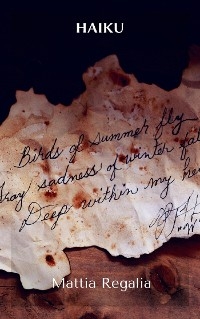 HAIKU
Birds of summer fly
sadness of winter
Deep within my
Mattia Regalia